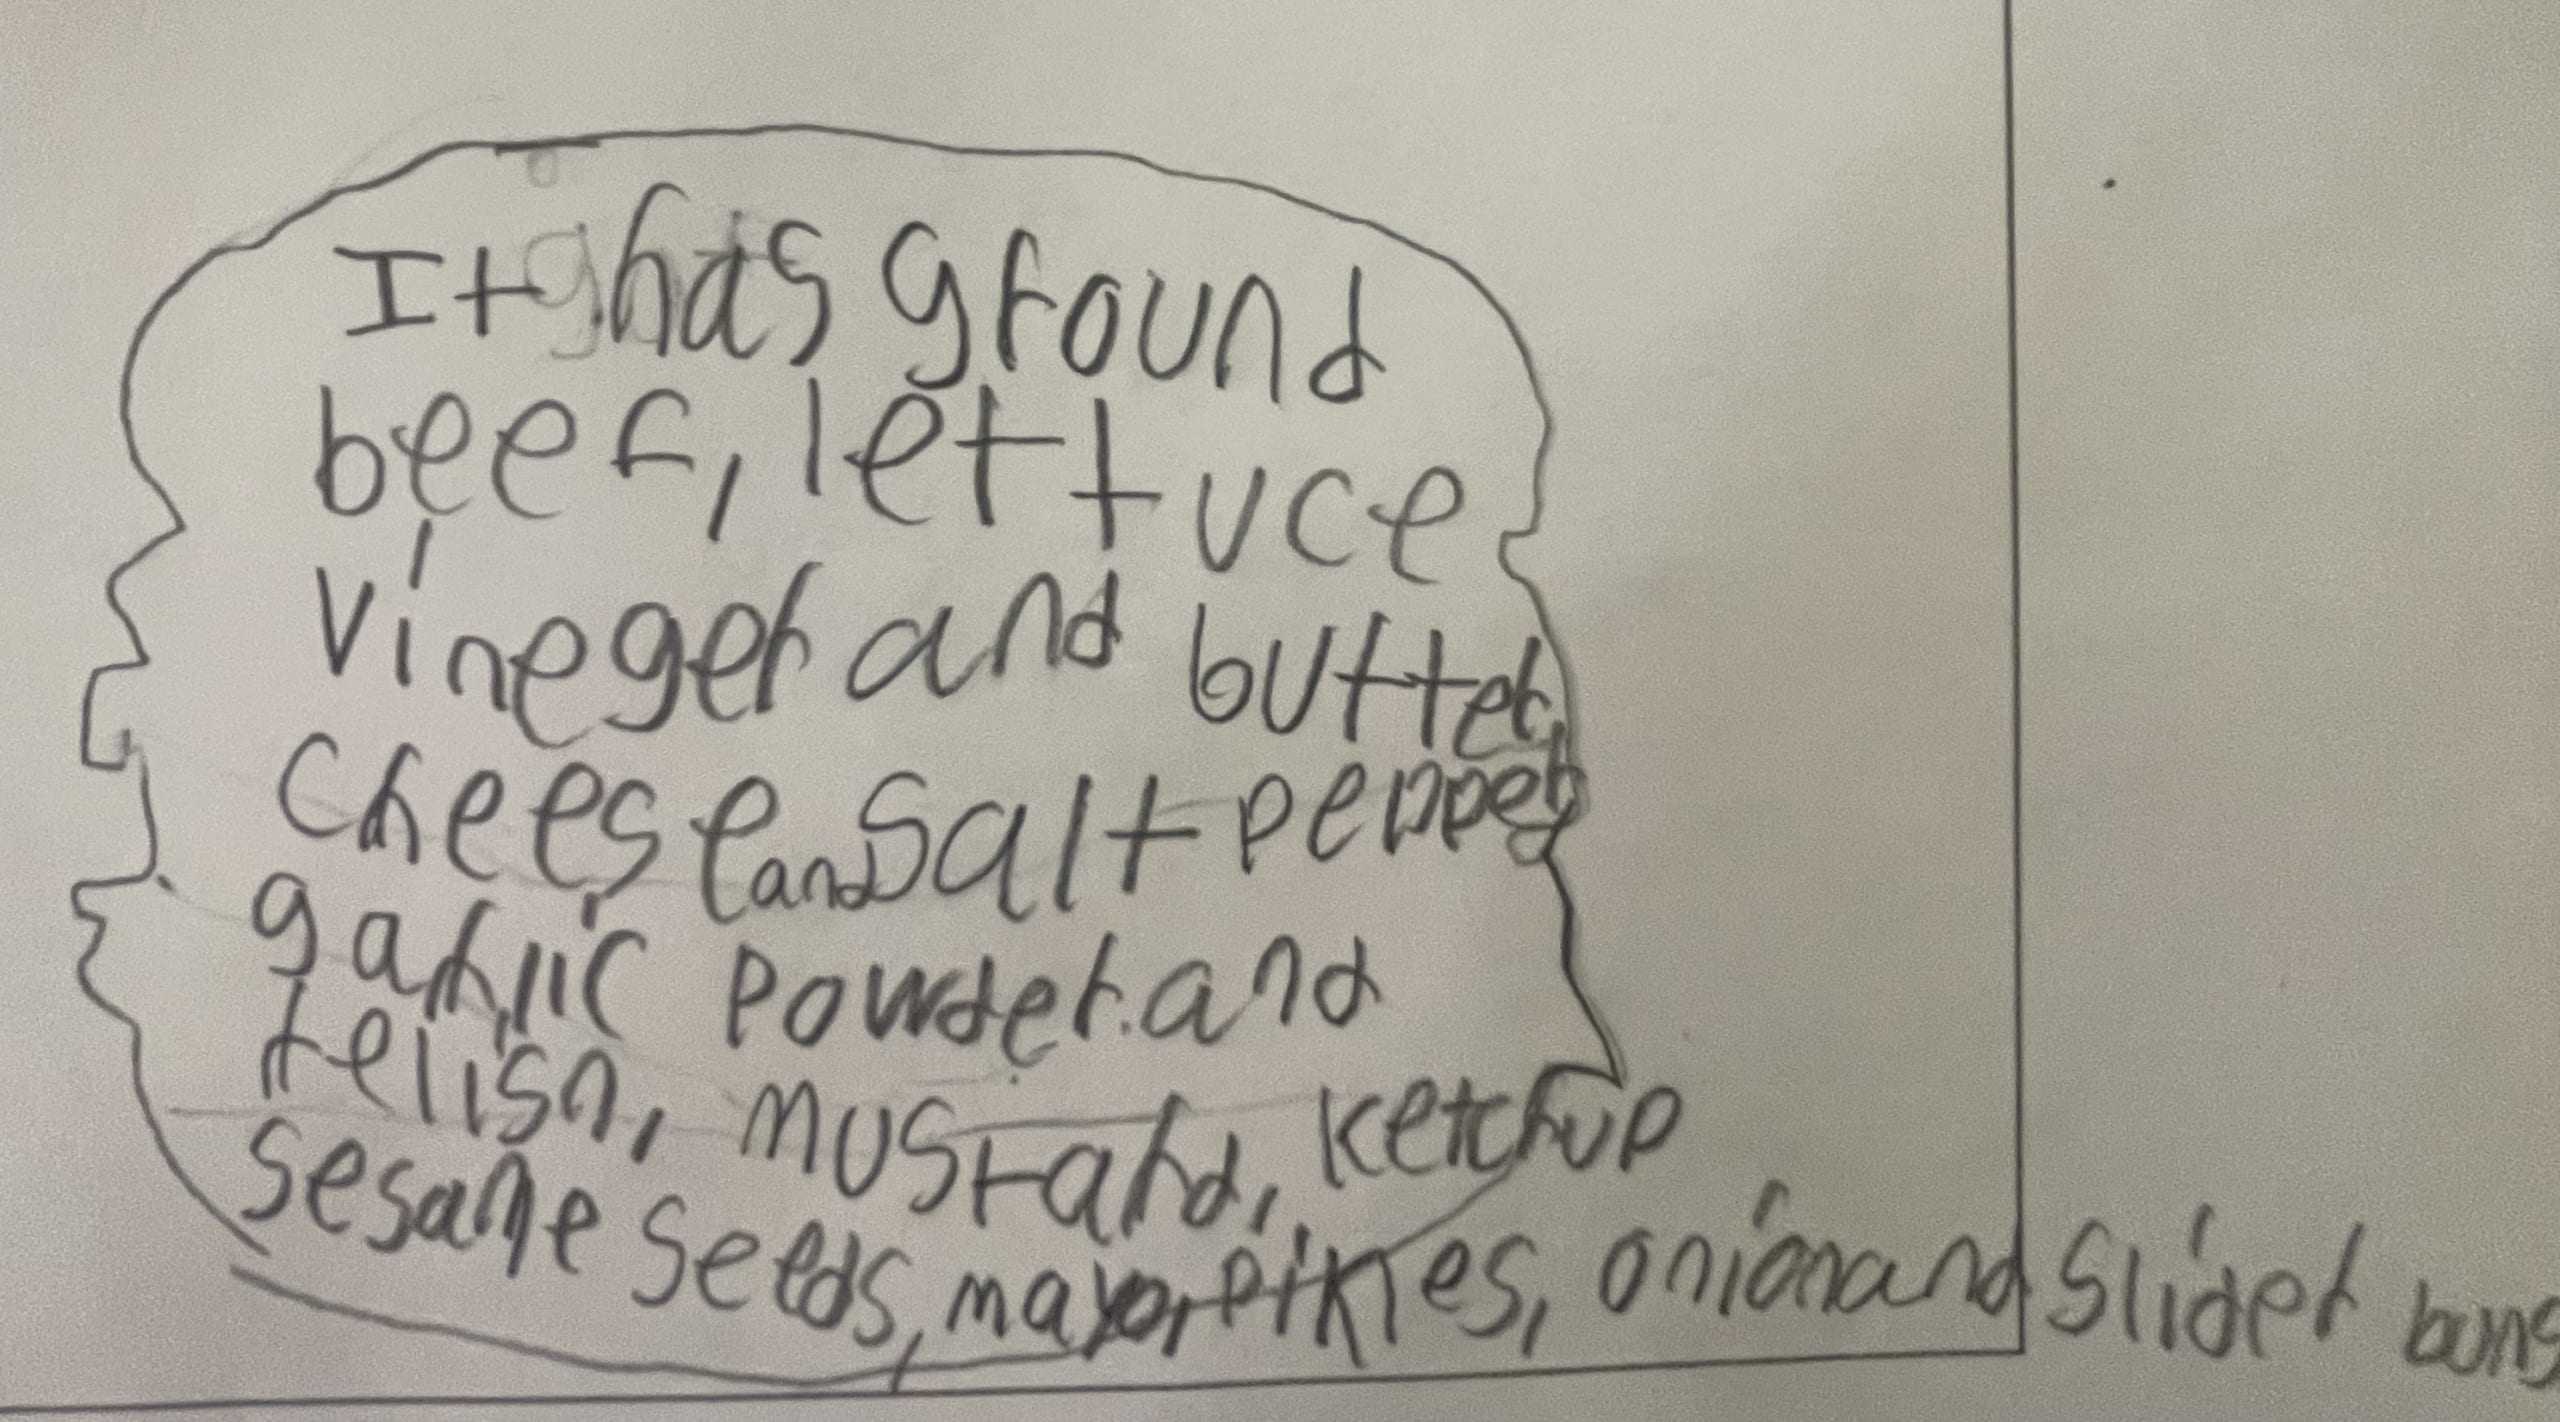 It has ground
beef, lettuce
vineger and butter,
cheese and salt pepper
garlic powder and
relish, mustard, ketchup
sesame seeds, mayo, pikles, onion and slider buns